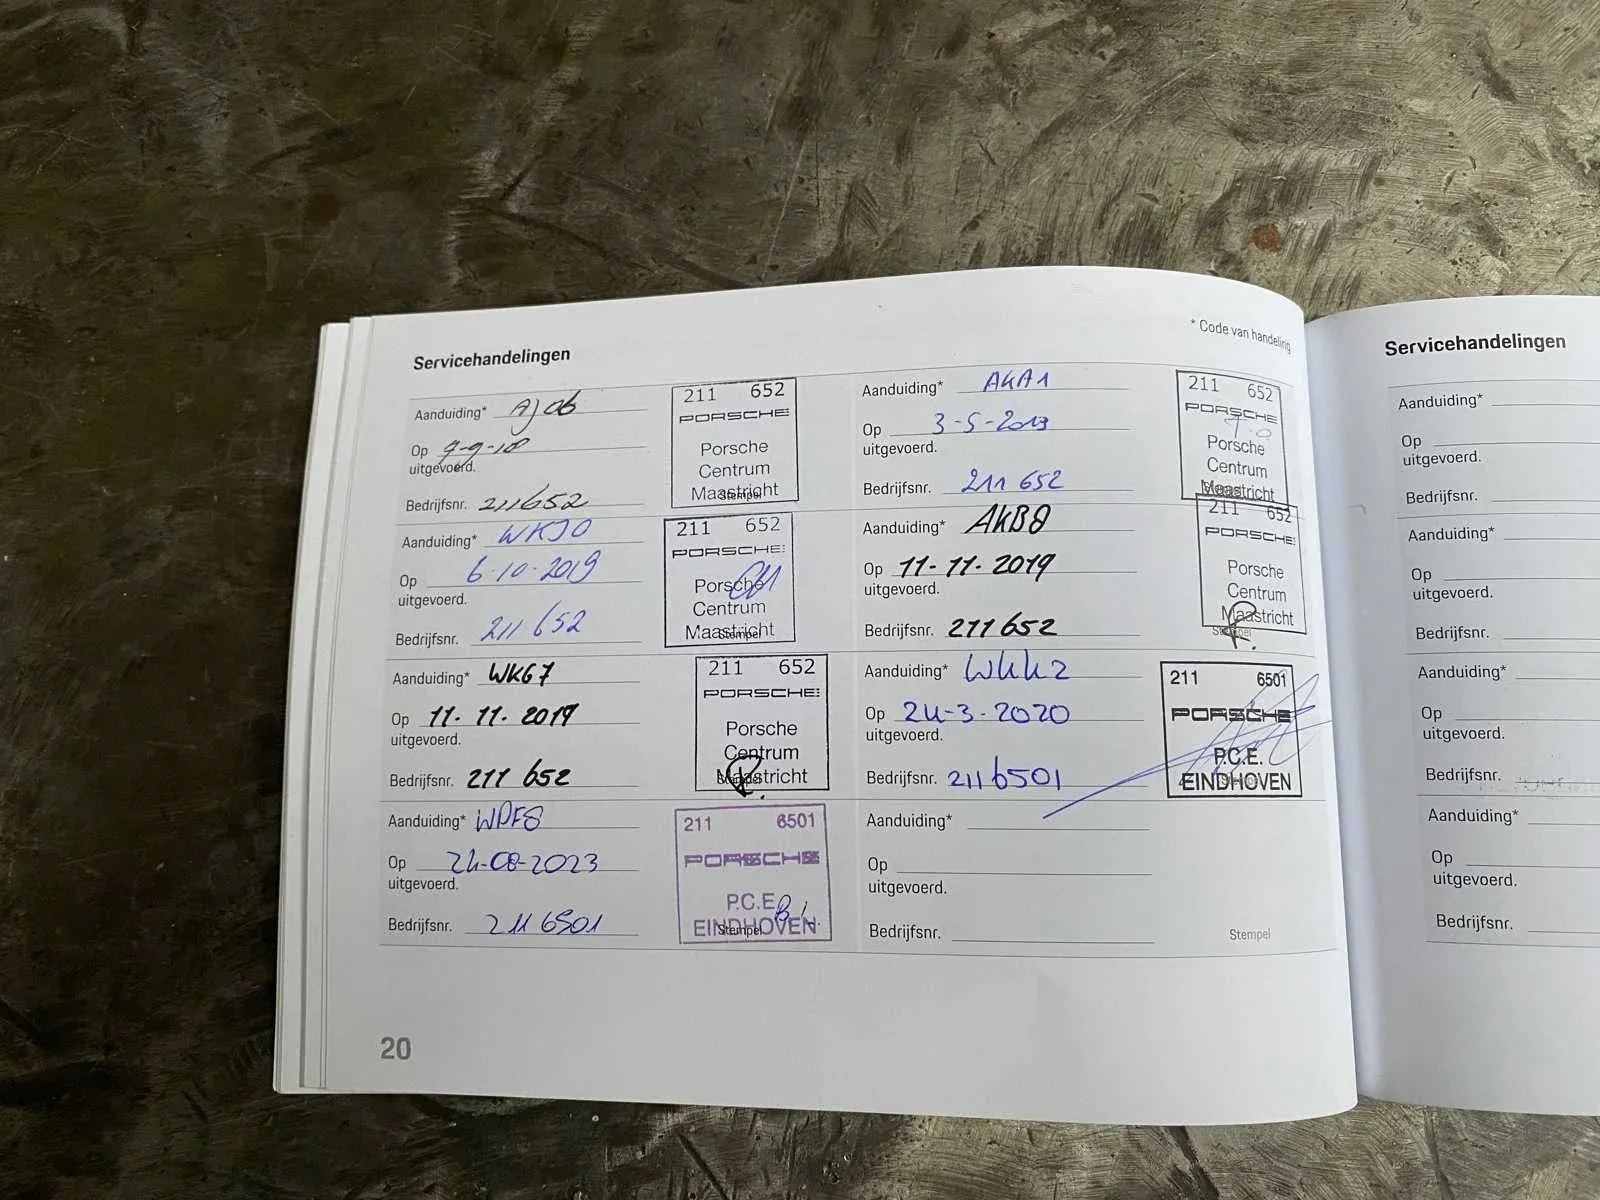 * Code van handeling
Servicehandelingen
Aanduiding* AJ06
Op 7-9-18
uitgevoerd.
Bedrijfsnr. 211652
211 652
PORSCHE
Porsche
Centrum
Maastricht
Stempel
Aanduiding* AKA1
Op 3-5-2019
uitgevoerd.
Bedrijfsnr. 211 652
211 652
PORSCHE
Porsche
Centrum
Maastricht
Aanduiding* WKJ0
Op 6-10-2019
uitgevoerd.
Bedrijfsnr. 211 652
211 652
PORSCHE
Porsche
Centrum
Maastricht
Stempel
Aanduiding* AKB8
Op 11-11-2019
uitgevoerd.
Bedrijfsnr. 211 652
211 652
PORSCHE
Porsche
Centrum
Maastricht
Stempel
Aanduiding* WKG7
Op 11-11-2019
uitgevoerd.
Bedrijfsnr. 211 652
211 652
PORSCHE
Porsche
Centrum
Maastricht
Stempel
Aanduiding* WKK2
Op 24-3-2020
uitgevoerd.
Bedrijfsnr. 2116501
211 6501
PORSCHE
P.C.E.
EINDHOVEN
Stempel
Aanduiding* WPF8
Op 24-08-2023
uitgevoerd.
Bedrijfsnr. 2116501
211 6501
PORSCHE
P.C.E.
EINDHOVEN
Stempel
Aanduiding*
Op
uitgevoerd.
Bedrijfsnr.
Stempel
20
Servicehandelingen
Aanduiding*
Op
uitgevoerd.
Bedrijfsnr.
Aanduiding*
Op
uitgevoerd.
Bedrijfsnr.
Aanduiding*
Op
uitgevoerd.
Bedrijfsnr.
Aanduiding*
Op
uitgevoerd.
Bedrijfsnr.